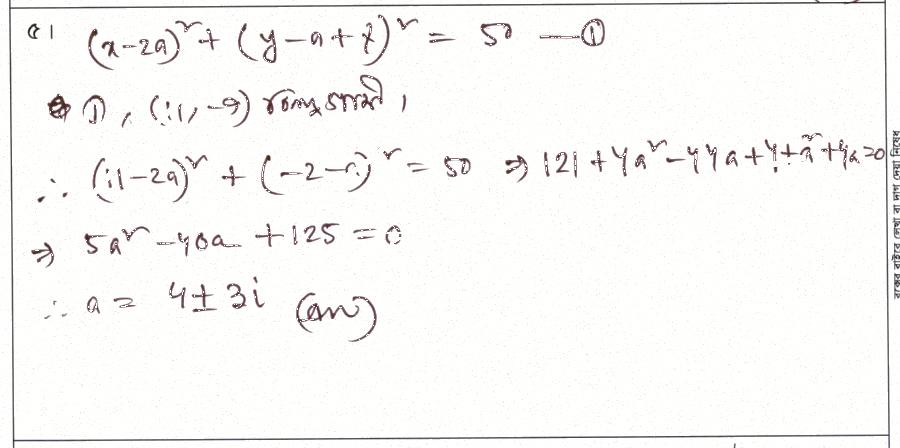 ৫।
(x-2a)² + (y-a+7)² = 50 —①
①, (11, -9) বিন্দুগামী,
∴ (11-2a)² + (-2-a)² = 50 ⇒ 121+4a²-44a+4+a²+4a=0
⇒ 5a² -40a +125 = 0
∴ a = 4±3i (ans)
বক্সের বাইরে লেখা বা দাগ দেয়া নিষেধ